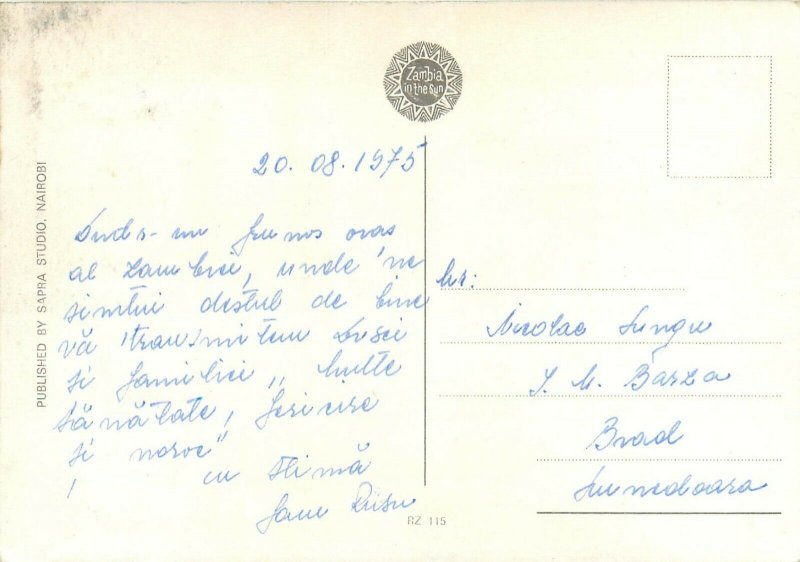 Zambia
in the Sun
PUBLISHED BY SAPRA STUDIO, NAIROBI
20. 08. 1975
Într-un frumos oraș
al Zambiei, unde ne
simțim destul de bine
vă transmitem Dvs
și familiei „Multe
sănătate, fericire
și noroc"
cu stimă
Rusu
Mr:
Nicolae Lungu
I. M. Barza
Brad
Hunedoara
RZ 115